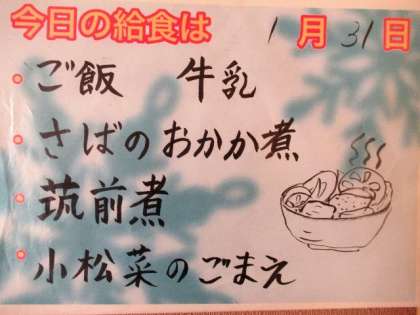 今日の給食は 1月31日
・ご飯 牛乳
・さばのおかか煮
・筑前煮
・小松菜のごまえ